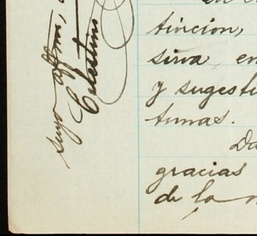 tinción,
sirva, en
y sugesti
tumas.
Da
gracias
de la
suyo affmo,
Celestino